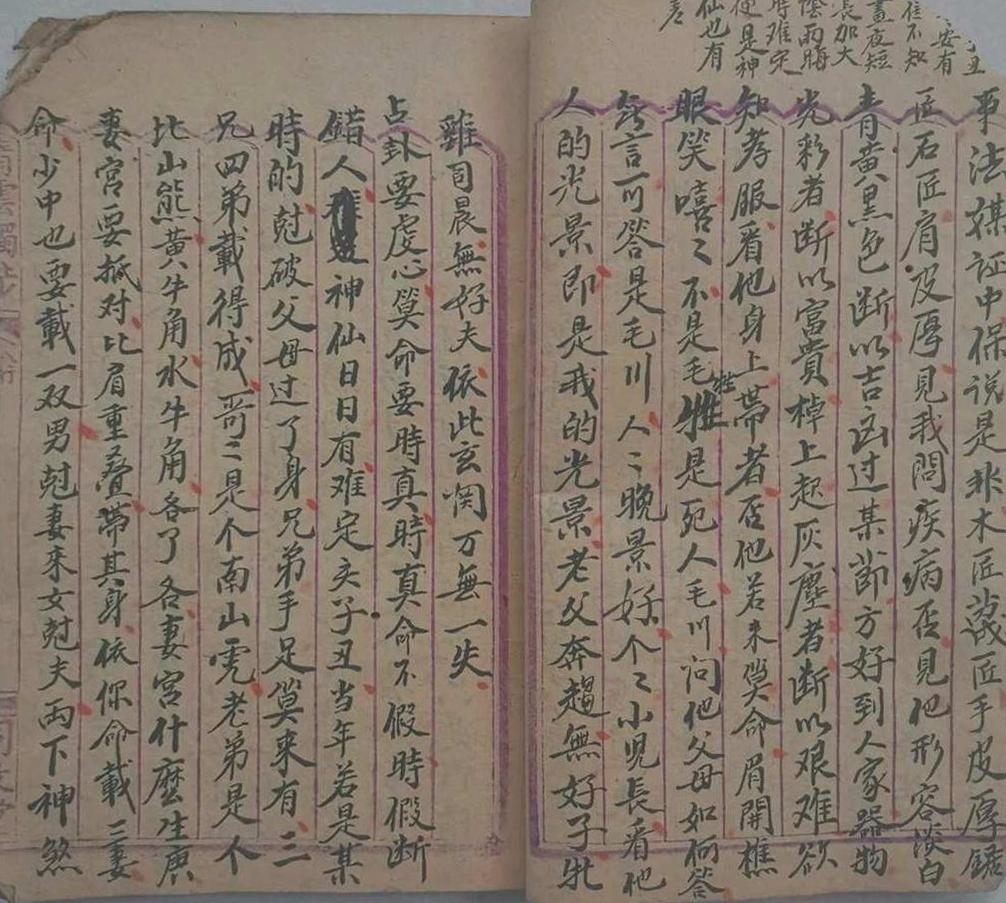 丑
安有
住不知
晝夜短
長加大
陰雨晦
時难定
便是神
仙也有
差
事法媒证中保说是非木匠匠手皮厚鋸
匠石匠肩皮厚見我問疾病否見他形容淡白
青黄黑色断以吉凶过某節方好到人家器物
光彩者断以富貴棹上起灰塵者断以艰难欲
知孝服看他身上帶者否他若来算命眉開
眼笑嘻〻不是毛牲是死人毛川问他父母如何答
言可答是毛川人〻晚景好个〻小児長看他
人的光景即是我的光景老父奔趨無好子牝
雞司晨無好夫依此玄関万無一失
占卦要虔心算命要時真時真命不假時假断
錯人神仙日日有难定亥子丑当年若是某
時的尅破父母过了身兄弟手足算来有三
兄四弟載得成哥〻是个南山虎老弟是个
比山熊黄牛角水牛角各了各妻宫什麽生庚
妻宫要抵对比肩重叠帶其身依你命載三妻
命少中也要載一双男尅妻来女尅夫両下神煞